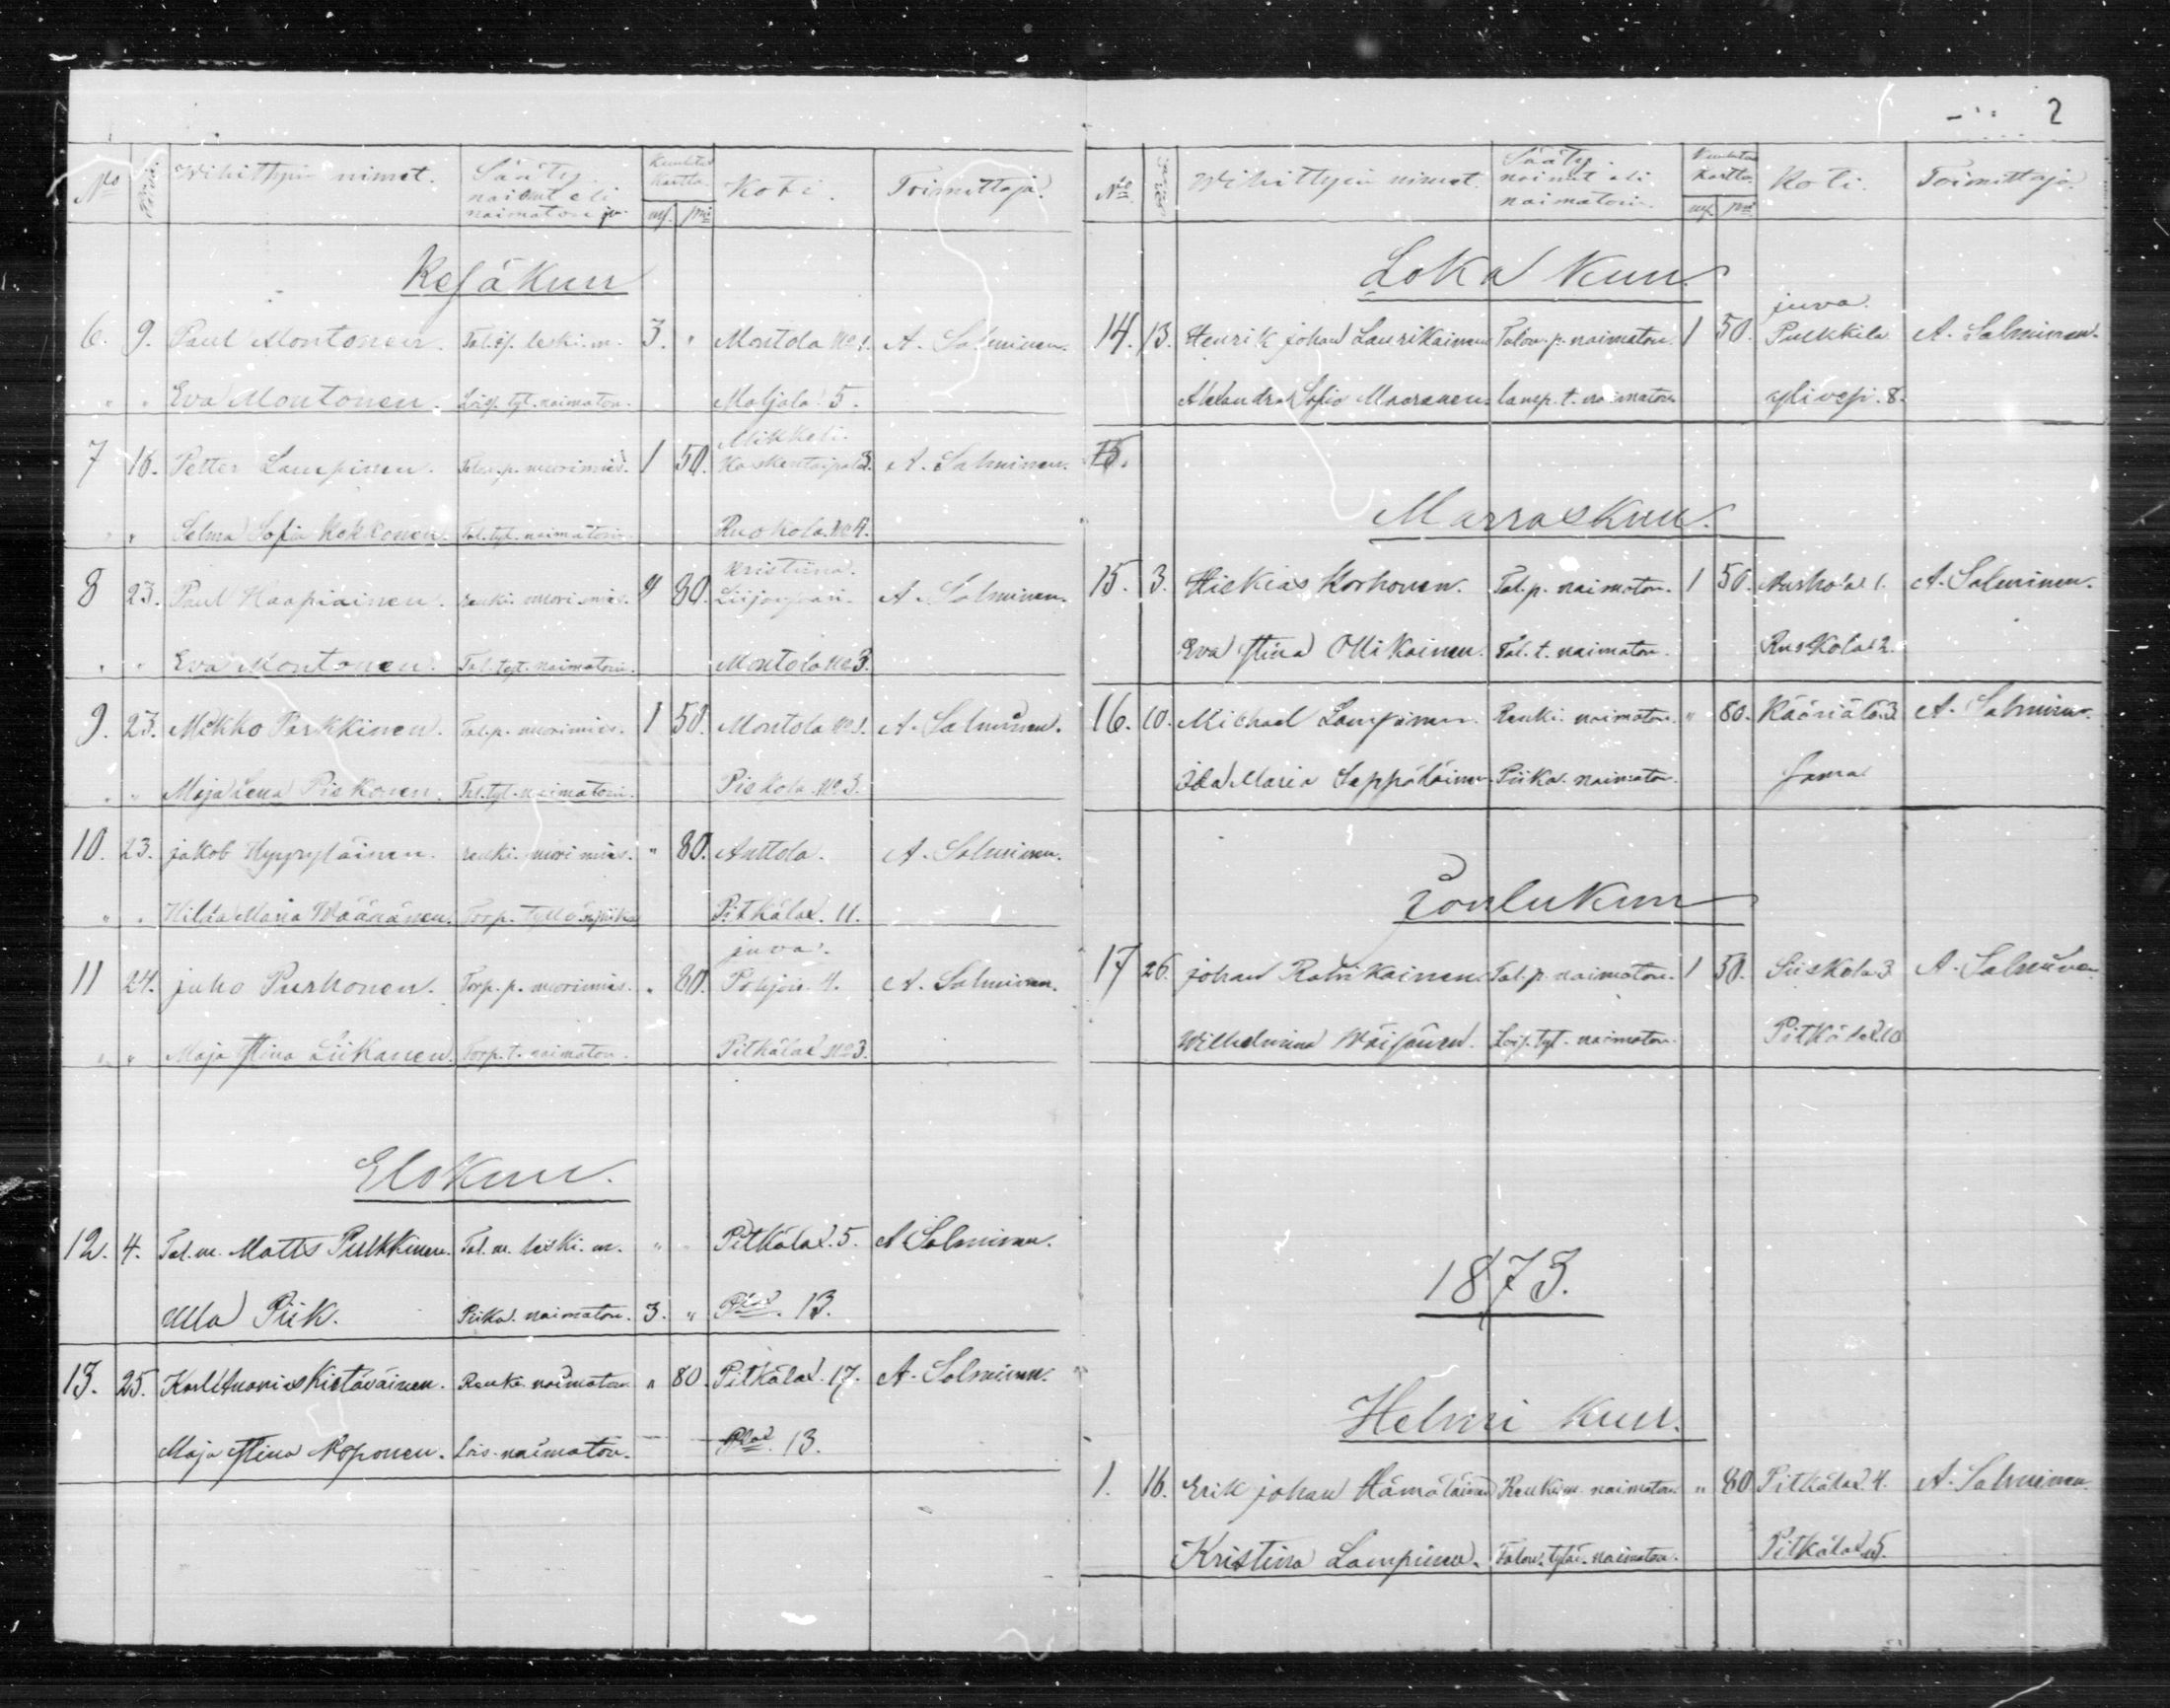 2
No Päivä Wihittyin nimet. Sääty naimat eli naimaton Kuulutus Kartta. mk. pni Koti. Toimittaja.
Kesäkuu
6. 9. Paul Montonen. Tal. is. leski. m. 3. " Montola No 1. A. Salminen.
" " Eva Montonen. Lois. tyt. naimaton. Maljala 5.
Mikkeli.
7 16. Petter Lampinen. Talon. p. nuorimies. 1 50. Koskentaipale 3. A. Salminen.
" " Selma Sofia Kokkonen. Tal. tyt. naimaton. Ruokola. No 4.
Kristiina.
8 23. Paul Haapiainen. renki. nuorimies. " 80. A. Salminen.
" " Eva Montonen. Tal. tyt. naimaton. Montola No 3.
9. 23. Mikko Parkkinen. Tal. p. nuorimies. 1 50. Montola No 1. A. Salminen.
" " Maja Lena Piskonen. Tal. tyt. naimaton. Piskola No 3.
10. 23. jakob Hyyryläinen. renki. nuorimies. " 80. Anttola. A. Salminen.
" " Hilda Maria Wäänänen. Torp. Pitkälax. 11.
juva.
11 24. juho Purhonen. Torp. p. nuorimies. " 80. Pohjois 4. A. Salminen.
" " Maja Stina Liikanen. Torp. t. naimaton. Pitkälax No 3.
Elokuu.
12. 4. Tal. m. Matts Pulkkinen. Tal. m. leski. m. " " Pitkälax. 5. A Salminen.
Ulla Piik. Piika. naimaton. 3. " Plax. 13.
13. 25. Karl Ananias Kietäväinen. Renki. naimaton. " 80. Pitkälax. 17. A. Salminen.
Maja Stina Noponen. Lois. naimaton. Plax. 13.
No Päivä Wihittyin nimet. Sääty naimat eli naimaton. Kuulutus Kartta. mk. pni Koti. Toimittaja.
Loka Kuu.
juva.
14. 13. Henrik johan Laurikainen Talon. p. naimaton. 1 50. Pulkkila A. Salminen.
Alexandra Sofia Maaranen. lamp. t. naimaton ylivesi. 8.
15.
Marraskuu.
15. 3. Hiskias Korhonen. Tal. p. naimaton. 1 50. 1. A. Salminen.
Eva Stina Ollikainen. Tal. t. naimaton. Ruskola 2.
16. 10. Michael Lampinen. Renki. naimaton. " 80. Kääriälä. 3 A. Salminen.
Ida Maria Seppäläinen. Piika. naimaton. Sama
Joulukuu
17 26. johan Rahikainen. Tal. p. naimaton. 1 50. Siiskola 3 A. Salminen.
Wilhelmina Wäisänen. Lois. tyt. naimaton. Pitkälax. 10
1873.
Helmi kuu.
1. 16. Erik johan Hämäläinen Renki m. naimaton. " 80 Pitkälax. 4. A. Salminen.
Kristina Lampinen. Talon. tytär. naimaton. Pitkälax 5.